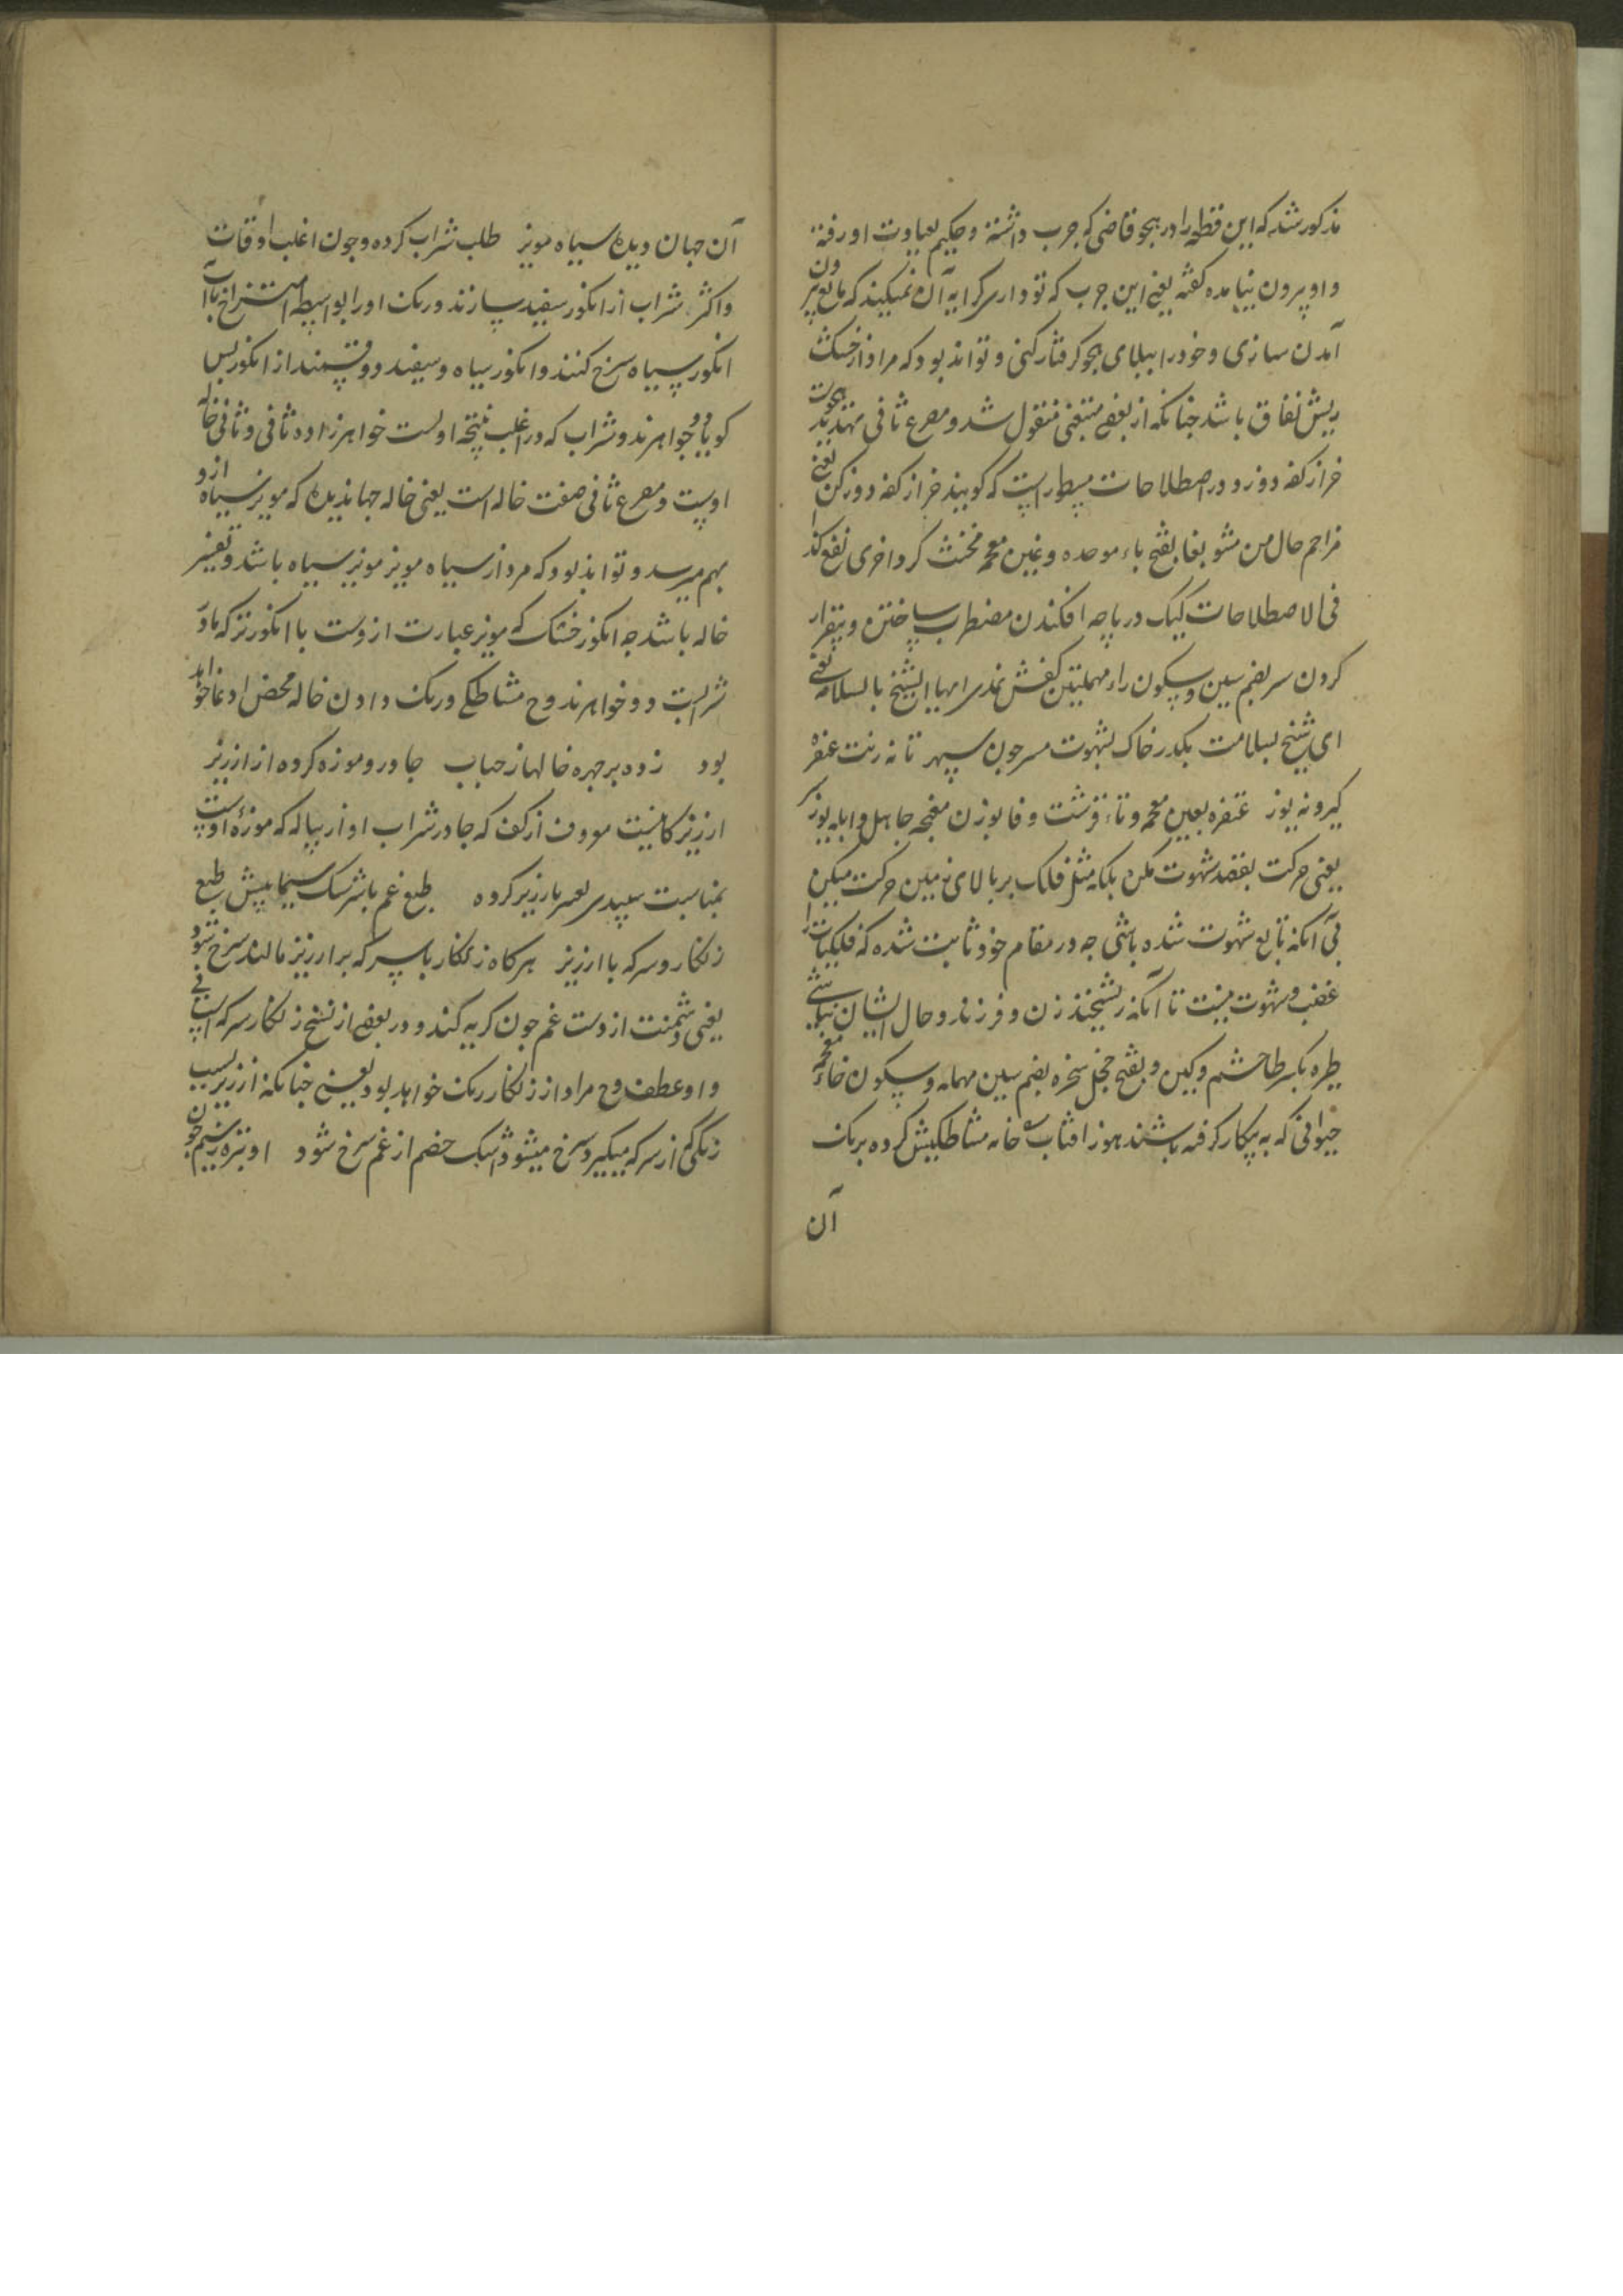 مذکور شد که این قطعه را در هجو قاضی که جرب داشته و حکیم بعیادت او رفته
و او بیرون نیامده گفته یعنی این جرب که تو داری کرایه آن نمیکند که مانع بیرون
آمدن سازی و خود را ببلای هجو گرفتار کنی و تواند بود که مراد از خشک
ریش نفاق باشد چنانکه از بعضی منقول شد و مصرع ثانی تهدید
خر از کفه دوز و در اصطلاحات مسطور است که گویند خر از کفه دور کن یعنی
مزاحم حال من مشو بغا بفتح باء موحده و غین معجمه مخنث کر واخری
فی الاصطلاحات کیک در پاچه افکندن مضطرب ساختن و بیقرار
کردن سر بضم سین و سکون راء مهملتین کفش نمدی ایها الشیخ بالسلامه یعنی
ای شیخ بسلامت بگذر خاک بشهوت مسر چون سپهر تا نه زنت غتفره
گیرد نه پوز غتفره بغین معجمه و تاء قرشت و فا بوزن جاهل و ابله پوز
یعنی حرکت بقصد شهوت مکن بلکه مثل فلک بر بالای زمین حرکت میکن
بی آنکه تابع شهوت شده باشی چه در مقام خود ثابت شده که فلکیات را
غضب و شهوت نیست تا آنکه ریشخند زن و فرزند و حال ایشان نباشی
طره بکسر طا خشم و کین و بفتح خجل سخره بضم سین مهمله و سکون خاء معجمه
حیوانی که به بیکار گرفته باشند هوز افتاب خانه مشاطگیش کرده برنگ
آن
آن جهان دیده سیاه مویز طلب شراب کرده و چون اغلب اوقات
و اکثر شراب از انگور سفید سازند و رنگ او را بواسطه امتزاج با آب
انگور سیاه سرخ کنند و انگور سیاه و سفید دو قسمند از انگور پس
گویا دو خواهرند و شراب که در اغلب نتیجه اولست خواهرزاده ثانی و ثانی خاله
اوست و مصرع ثانی صفت خاله است یعنی خاله جهاندیده که مویز سیاه ازو
بهم میرسد و تواند بود که مراد از سیاه مویز مویز سیاه باشد و تفسیر
خاله باشد چه انگور خشک که مویز عبارت ازوست با انگور تر که مادر
شرابست دو خواهرند و ح مشاطگی و رنگ دادن خاله محض ادعا خواهد
بود زده بر چهره خالها از حباب چادر و موزه کرده از ارزیز
ارزیز کانیست معروف از کف که چادر شراب او از پیاله که موزه اوست
بمناسبت سپیدی تعبیر بارزیز کرده طبع غم با سرشک سیما پیش طبع
زنگار و سرکه با ارزیز هرگاه زنگار با سرکه بر ارزیز مالند سرخ شود
یعنی دشمنت از دست غم چون گریه کند و در بعضی از نسخ زنگار سرکه است بی
واو عطف و ح مراد از زنگار رنگ خواهد بود یعنی چنانکه ارزیز بسبب
زنگی که از سرکه میگیرد سرخ میشود اشک خصم از غم سرخ شود